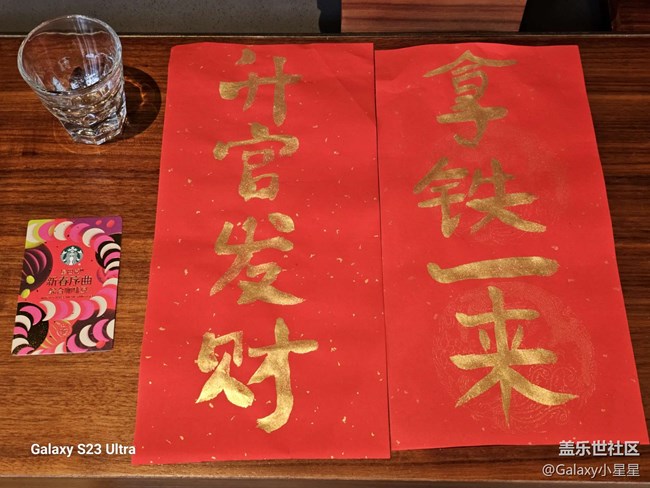 拿铁一来
升官发财
新春序曲
Galaxy S23 Ultra
盖乐世社区
@Galaxy小星星